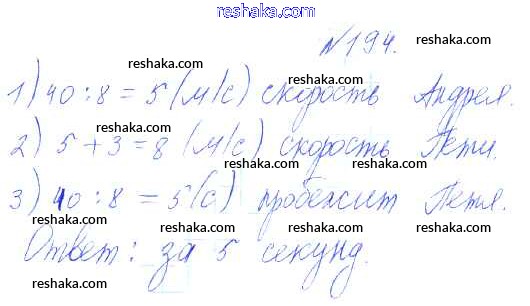 reshaka.com
№194.
reshaka.com
reshaka.com
1) 40 : 8 = 5 (м/с) скорость Андрея.
reshaka.com reshaka.com
2) 5 + 3 = 8 (м/с) скорость Пети.
reshaka.com reshaka.com
3) 40 : 8 = 5 (с) пробежит Петя.
reshaka.com reshaka.com
Ответ: за 5 секунд.
reshaka.com
reshaka.com